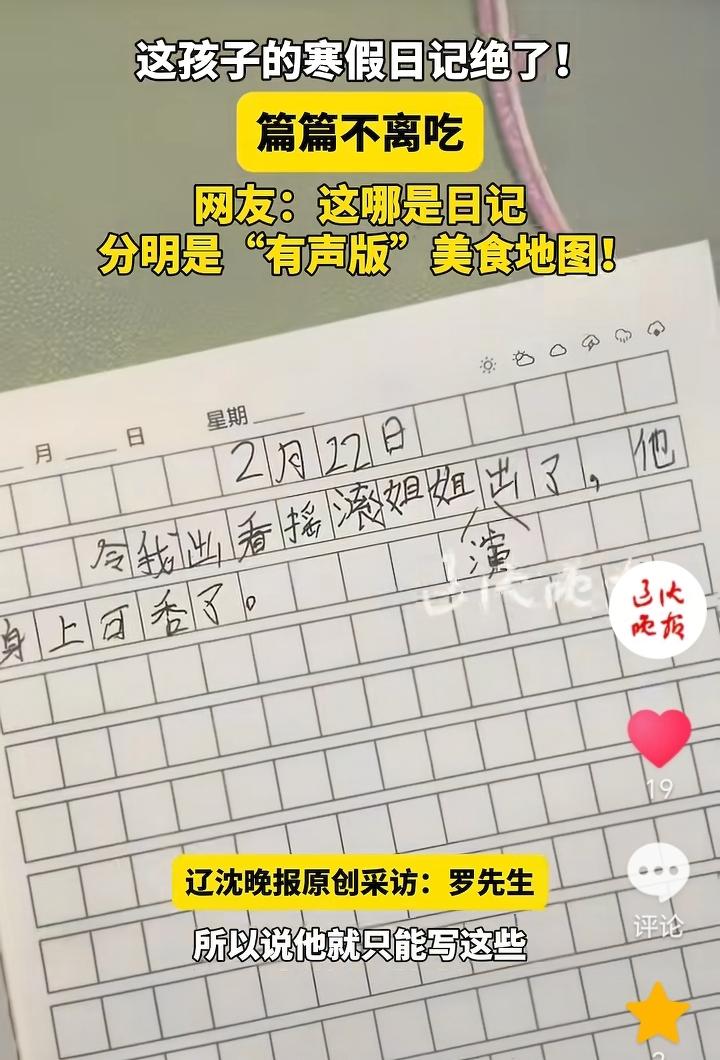 这孩子的寒假日记绝了！
篇篇不离吃
网友：这哪是日记
分明是“有声版”美食地图！
月 日 星期
2月22日
令我出看摇滚姐姐出了，他
演
身上可香了。
辽沈晚报
辽沈晚报
19
评论
辽沈晚报原创采访：罗先生
所以说他就只能写这些